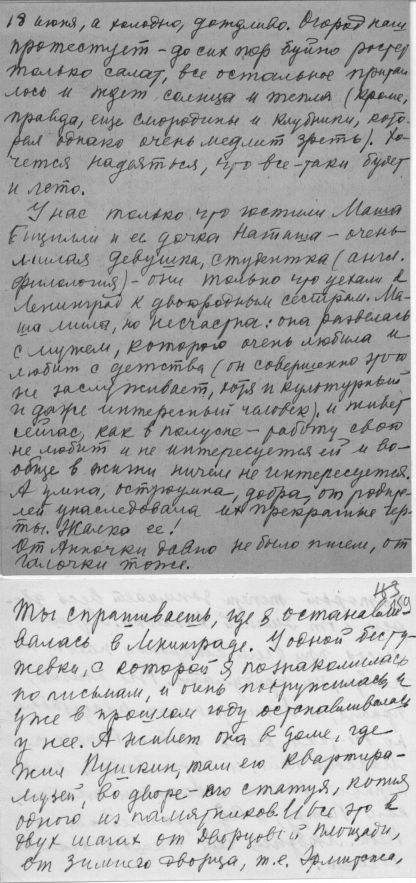 18 июня, а холодно, дождливо. Огород наш
протестует – до сих пор буйно растет
только салат, все остальное притаи-
лось и ждет солнца и тепла (кроме,
правда, еще смородины и клубники, кото-
рая однако очень медлит зреть). Хо-
чется надеяться, что все-таки будет
и лето.
У нас только что гостили Маша
Бицилли и ее дочка Наташа – очень
милая девушка, студентка (англ.
филология) – они только что уехали в
Ленинград к двоюродным сестрам. Ма-
ша мила, но несчастна: она развелась
с мужем, которого очень любила и
любит с детства (он совершенно этого
не заслуживает, хотя и культурный
и даже интересный человек), и живет
сейчас, как в полусне – работу свою
не любит и не интересуется ей и во-
обще в жизни ничем не интересуется.
А умна, остроумна, добра, от родите-
лей унаследовала их прекрасные чер-
ты. Жалко ее!
От Анночки давно не было писем, от
Галочки тоже.
Ты спрашиваешь, где я останавли-
валась в Ленинграде. У одной бесту-
жевки, с которой я познакомилась
по письмам, и очень подружилась и
уже в прошлом году останавливалась
у нее. А живет она в доме, где
жил Пушкин, там его квартира-
музей, во дворе – его статуя, копия
одного из памятников. И все это в
двух шагах от Дворцовой площади,
от Зимнего дворца, т.е. Эрмитажа,